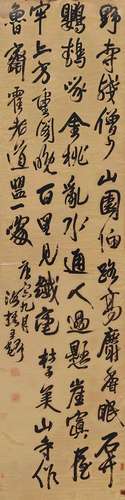 野寺殘僧少山園細路高麝香眠石竹
鸚鵡啄金桃亂水通人過懸崖置屋
牢上方重閣晚百里見纖毫 杜美山寺作
魯齋霍老道盟一粲
庚寅九月